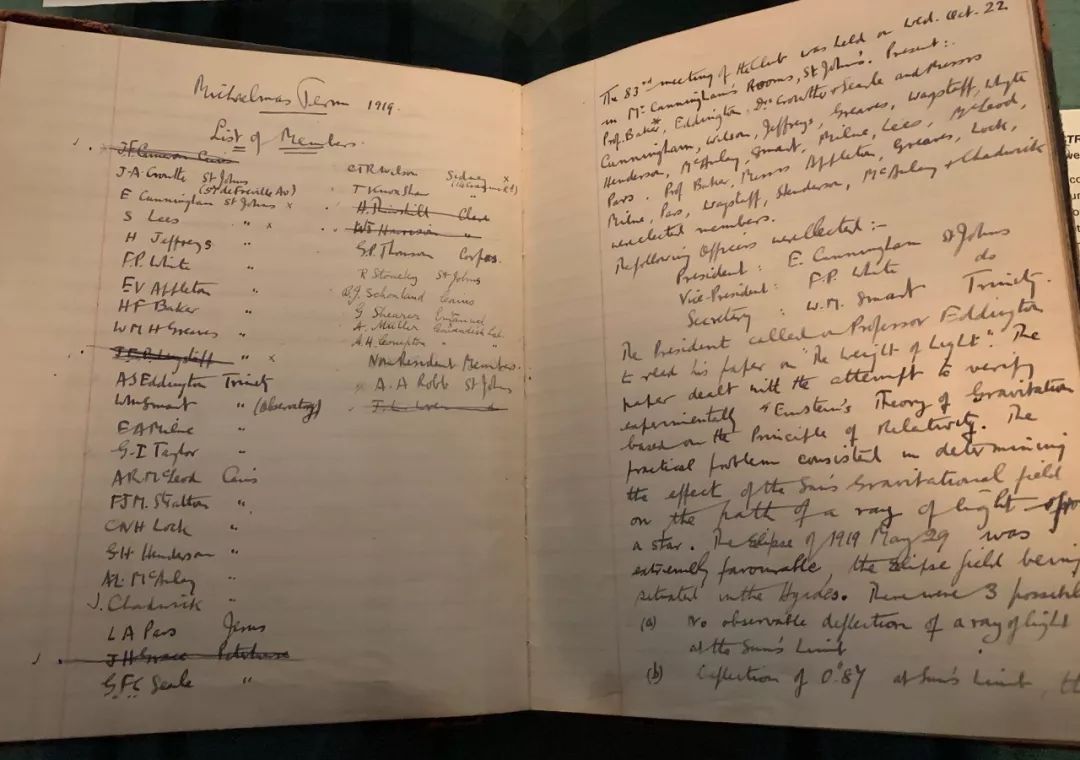 Michaelmas Term 1919.
List of Members.
J.F. Cameron Caius
J.A. Crowther St Johns
E Cunningham St Johns x
S Lees " x
H Jeffreys "
F.P. White "
E V Appleton "
H F Baker "
W M H Greaves "
" x
A S Eddington Trinity
W M Smart " (Observatory)
E A Milne "
G. I Taylor "
A R McLeod Caius
F J M. Stratton "
C N H Lock "
G H Henderson "
A L McAulay "
J. Chadwick "
L A Pars Jesus
J H Grace Peterhouse
G. F C Searle "
C T R Wilson Sidney x
T Knox Shaw "
H. Thirkill Clare
W J Harrison "
G. P. Thomson Corpus.
R Stoneley St Johns
B. J. Schonland Caius
G Shearer Emmanuel
A. Müller Cavendish Lab.
A. H. Compton " "
Non Resident Members.
A. A Robb St Johns
The 83rd meeting of the Club was held on Wed. Oct. 22
in Mr Cunningham's Rooms, St John's. Present:-
Prof. Baker*, Eddington, Drs Crowther & Searle and Messrs
Cunningham, Wilson, Jeffreys, Greaves, Wagstaff, Whyte
Henderson, McAulay, Smart, Milne, Lees, McLeod,
Pars. Prof Baker, Messrs Appleton, Greaves, Lock,
Milne, Pars, Wagstaff, Henderson, McAulay & Chadwick
were elected members.
The following Officers were elected:-
President: E. Cunningham St Johns
Vice-President: F.P. White do
Secretary: W.M. Smart Trinity.
The President called on Professor Eddington
to read his paper on "The Weight of Light". The
paper dealt with the attempt to verify
experimentally "Einstein's Theory of Gravitation
based on the Principle of Relativity. The
practical problem consisted in determining
the effect of the Sun's Gravitational field
on the path of a ray of light
a star. The Eclipse of 1919 May 29 was
extremely favourable, the Eclipse field being
situated in the Hyades. There were 3
(a) No observable deflection of a ray of light
at the Sun's Limb
(b) Deflection of 0".87 at Sun's Limb,